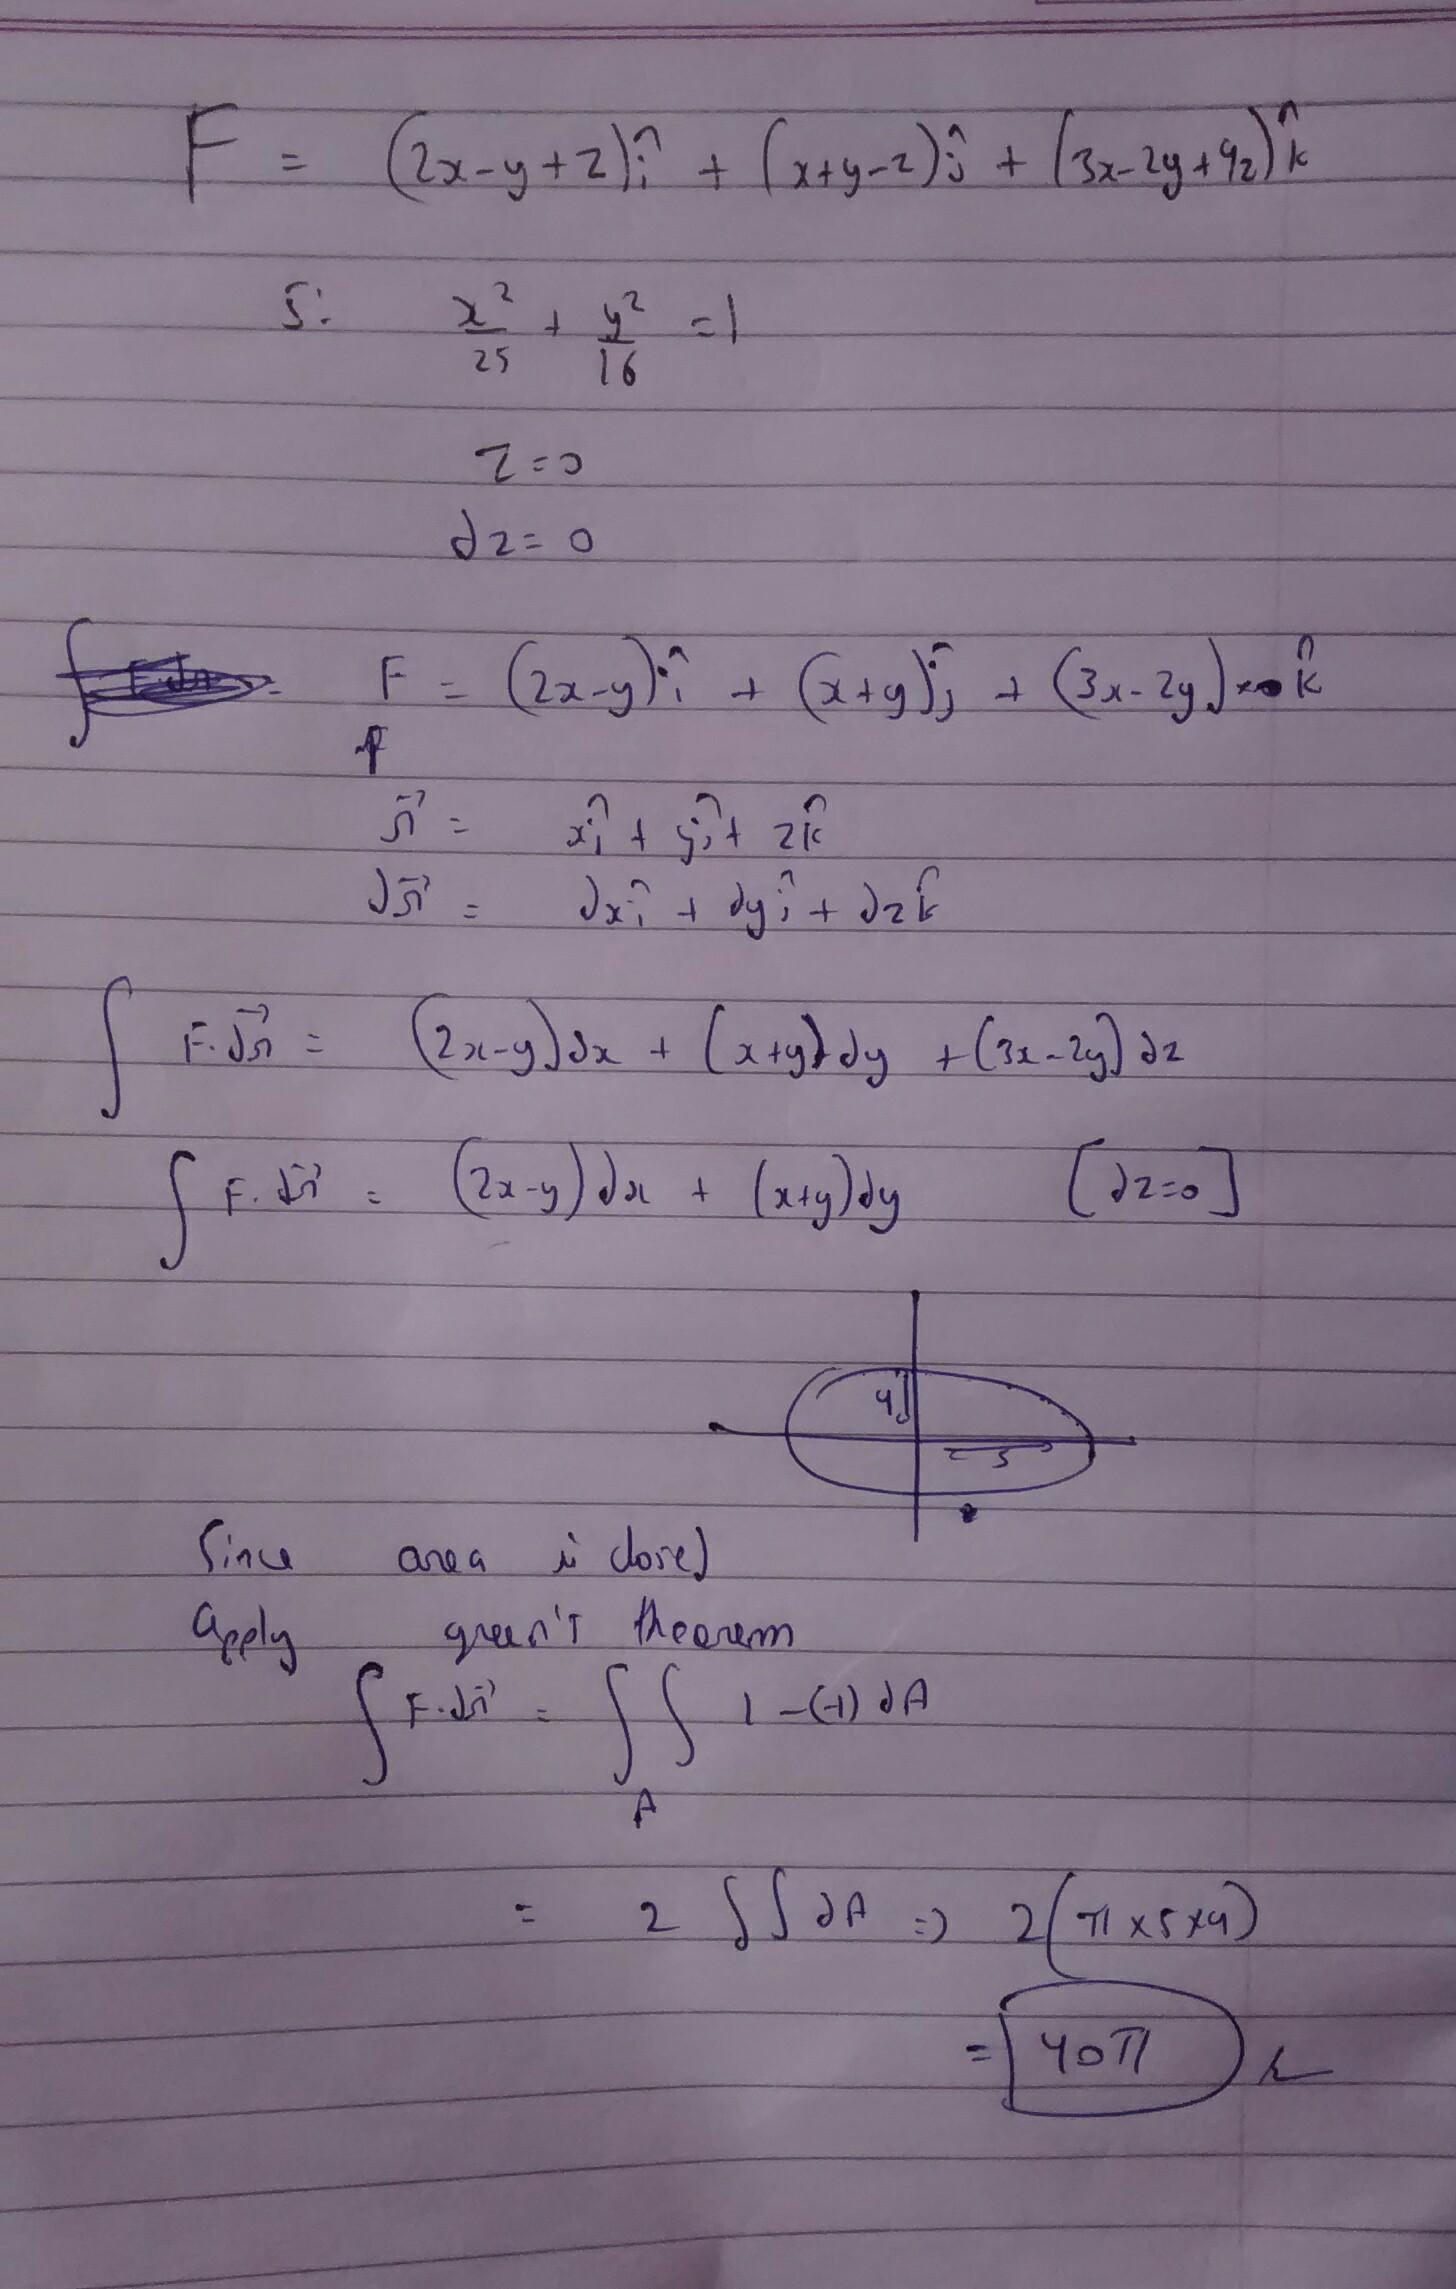 F = (2x-y+z)î + (x+y-z)ĵ + (3x-2y+4z)k̂
S: x²/25 + y²/16 = 1
z=0
dz=0
F = (2x-y)î + (x+y)ĵ + (3x-2y) k̂
r⃗ = xî + yĵ + zk̂
dr⃗ = dxî + dyĵ + dzk̂
∫ F.dr⃗ = (2x-y)dx + (x+y)dy + (3x-2y)dz
∫ F.dr⃗ = (2x-y)dx + (x+y)dy [dz=0]
4
5
Since area is closed
apply green's theorem
∫ F.dr⃗ = ∫∫ 1-(-1) dA
A
= 2 ∫∫ dA => 2(π x 5 x 4)
= 40π